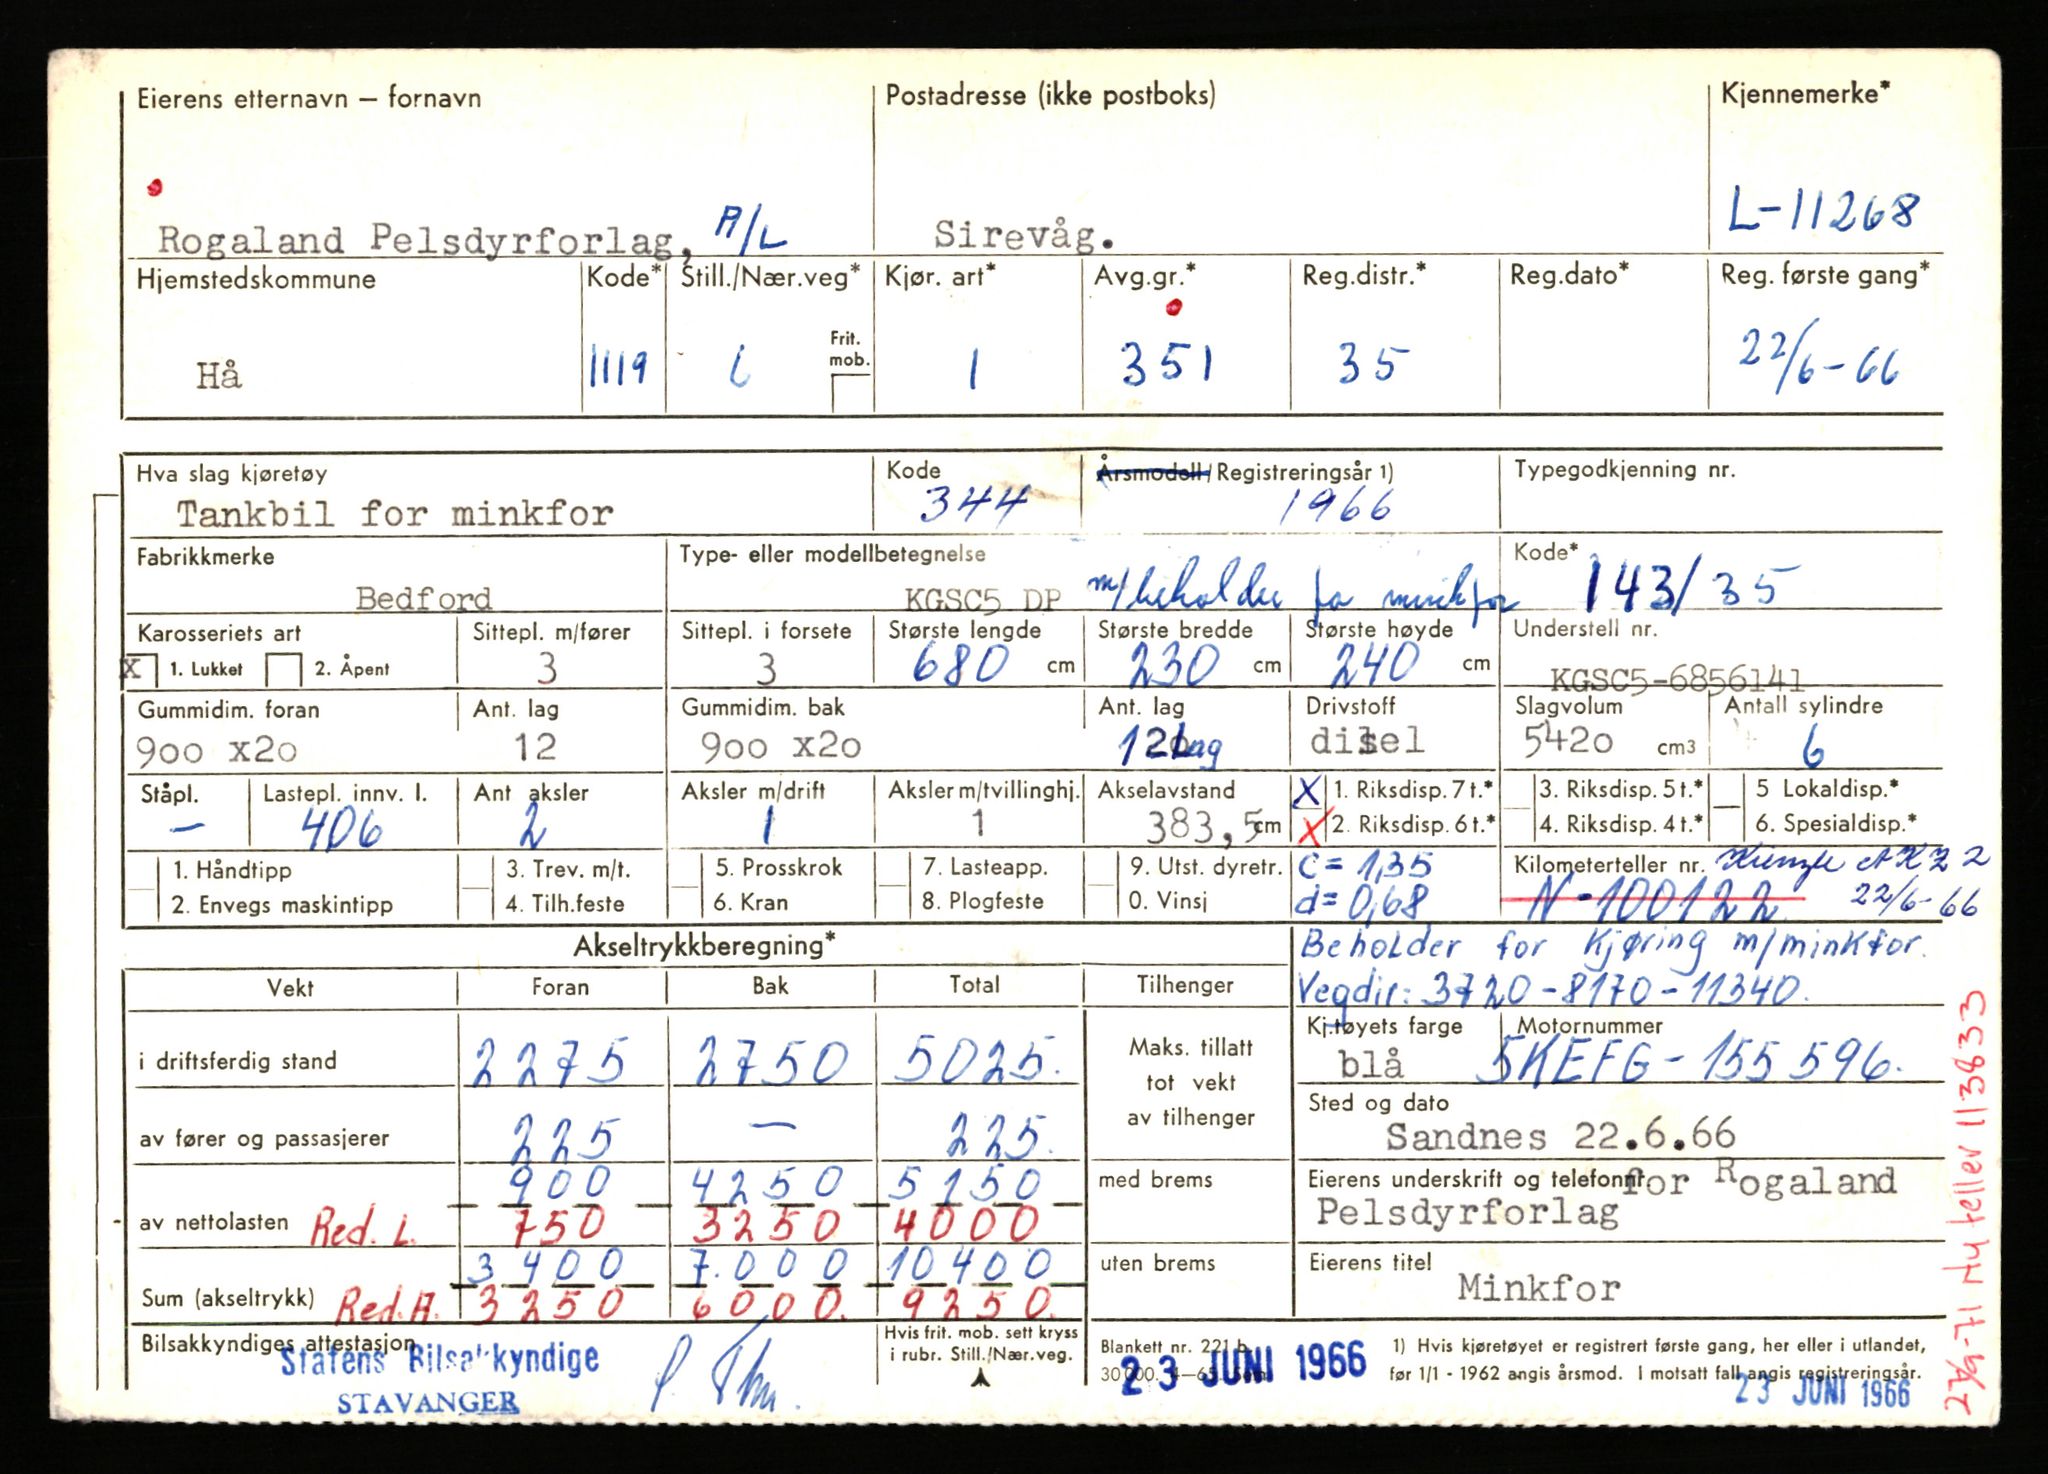 Eierens etternavn — fornavn Postadresse (ikke postboks) Kjennemerke*
Rogaland Pelsdyrforlag, A/L Sirevåg. L-11268
Hjemstedskommune Kode* Still./Nær.veg* Kjør. art* Avg.gr.* Reg.distr.* Reg.dato* Reg. første gang*
Frit. mob.
Hå 1119 6 1 351 35 22/6-66
Hva slag kjøretøy Kode Årsmodell/Registreringsår 1) Typegodkjenning nr.
Tankbil for minkfor 344 1966
Fabrikkmerke Type- eller modellbetegnelse Kode*
Bedford KGSC5 DP m/beholder for minkfor 143/35
Karosseriets art Sittepl. m/fører Sittepl. i forsete Største lengde Største bredde Største høyde Understell nr.
X 1. Lukket 2. Åpent 3 3 680 cm 230 cm 240 cm KGSC5-6856141
Gummidim. foran Ant. lag Gummidim. bak Ant. lag Drivstoff Slagvolum Antall sylindre
900 x20 12 900 x20 12 Lag disel 5420 cm3 6
Ståpl. Lastepl. innv. l. Ant aksler Aksler m/drift Aksler m/tvillinghj. Akselavstand X 1. Riksdisp. 7 t.* 3. Riksdisp. 5 t.* 5 Lokaldisp.*
— 406 2 1 1 383,5 cm X 2. Riksdisp. 6 t.* 4. Riksdisp. 4 t.* 6. Spesialdisp.*
1. Håndtipp 3. Trev. m/t. 5. Prosskrok 7. Lasteapp. 9. Utst. dyretr. c = 1,35 Kilometerteller nr. Kienzle
2. Envegs maskintipp 4. Tilh.feste 6. Kran 8. Plogfeste 0. Vinsj d = 0,68 N-100122 22/6-66
Akseltrykkberegning* Beholder for Kjøring m/minkfor.
Vekt Foran Bak Total Tilhenger Vegdir: 3720-8170-11340.
Kj.tøyets farge Motornummer
i driftsferdig stand 2275 2750 5025. Maks. tillatt tot vekt av tilhenger blå 5KEFG-155596.
Sted og dato
av fører og passasjerer 225 — 225. Sandnes 22.6.66
900 4250 5150 med brems Eierens underskrift og telefonnr for Rogaland
av nettolasten Red. L. 750 3250 4000 Pelsdyrforlag
3400 7.000 10400 uten brems Eierens titel
Sum (akseltrykk) Red. A. 3250 6000. 9250. Minkfor
Bilsakkyndiges attestasjon Hvis frit. mob. sett kryss i rubr. Still./Nær.veg. Blankett nr. 221 b 1) Hvis kjøretøyet er registrert første gang, her eller i utlandet,
Statens Bilsakkyndige 30 000. 4—65. 23 JUNI 1966 før 1/1 - 1962 angis årsmod. I motsatt fall angis registreringsår.
STAVANGER 23 JUNI 1966
27/9-71 Ny teller 113833